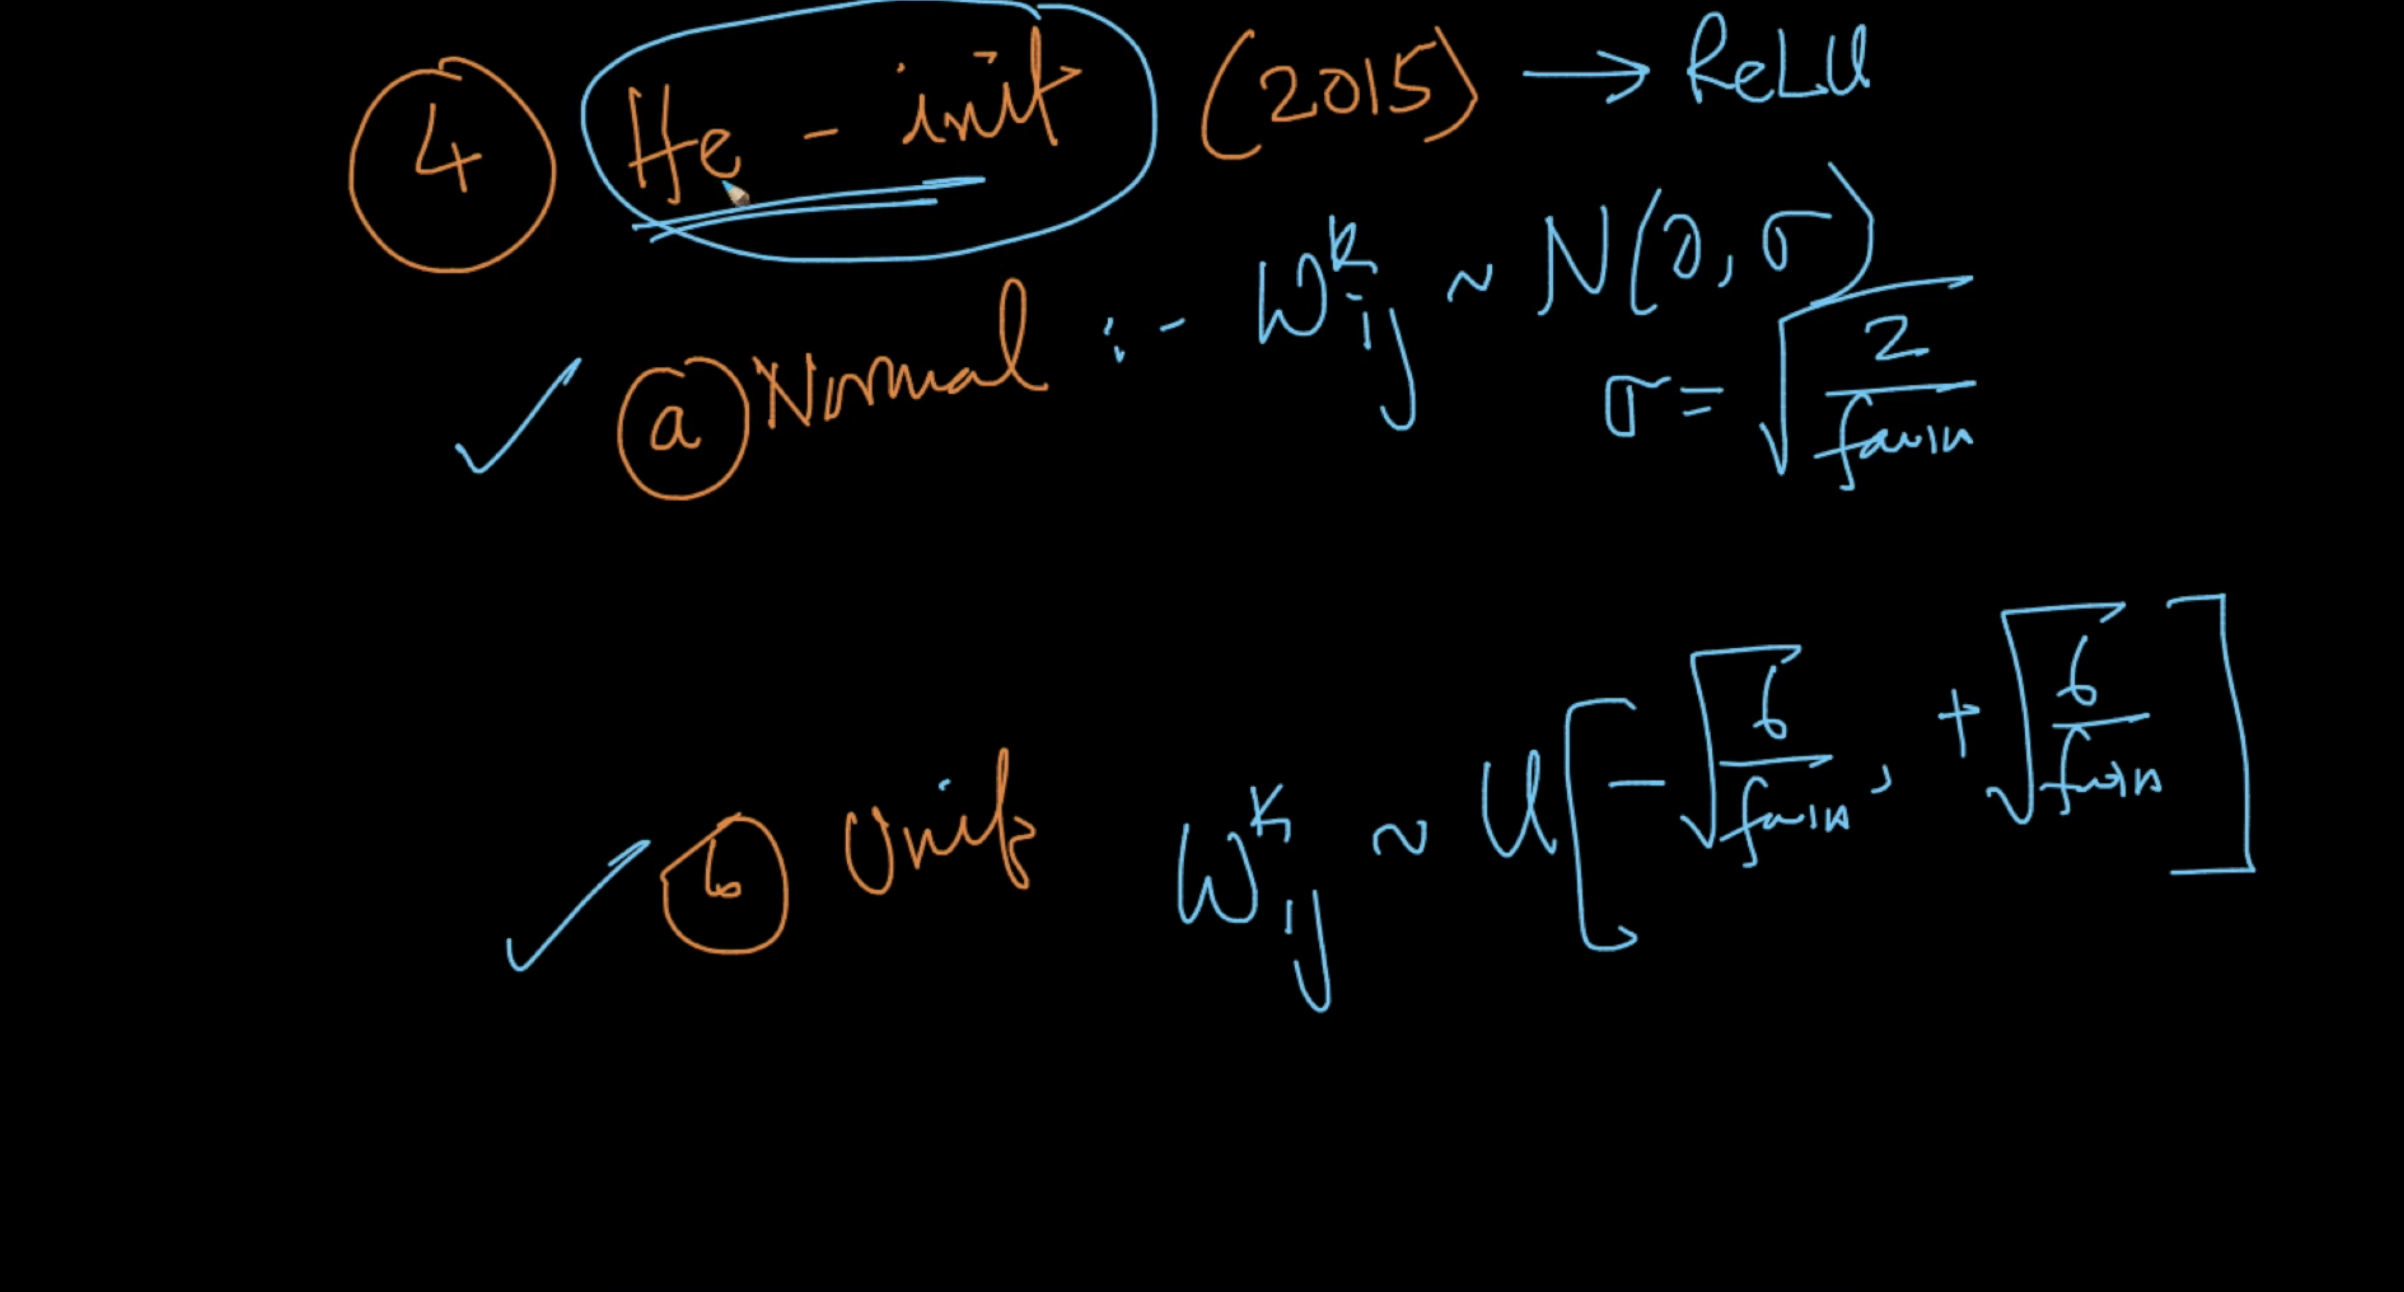 4 He - init (2015) → ReLU
a Normal :- W^k_ij ~ N(0, σ)
σ = √(2/fanin)
b Unif W^k_ij ~ U[-√(6/fanin), +√(6/fanin)]